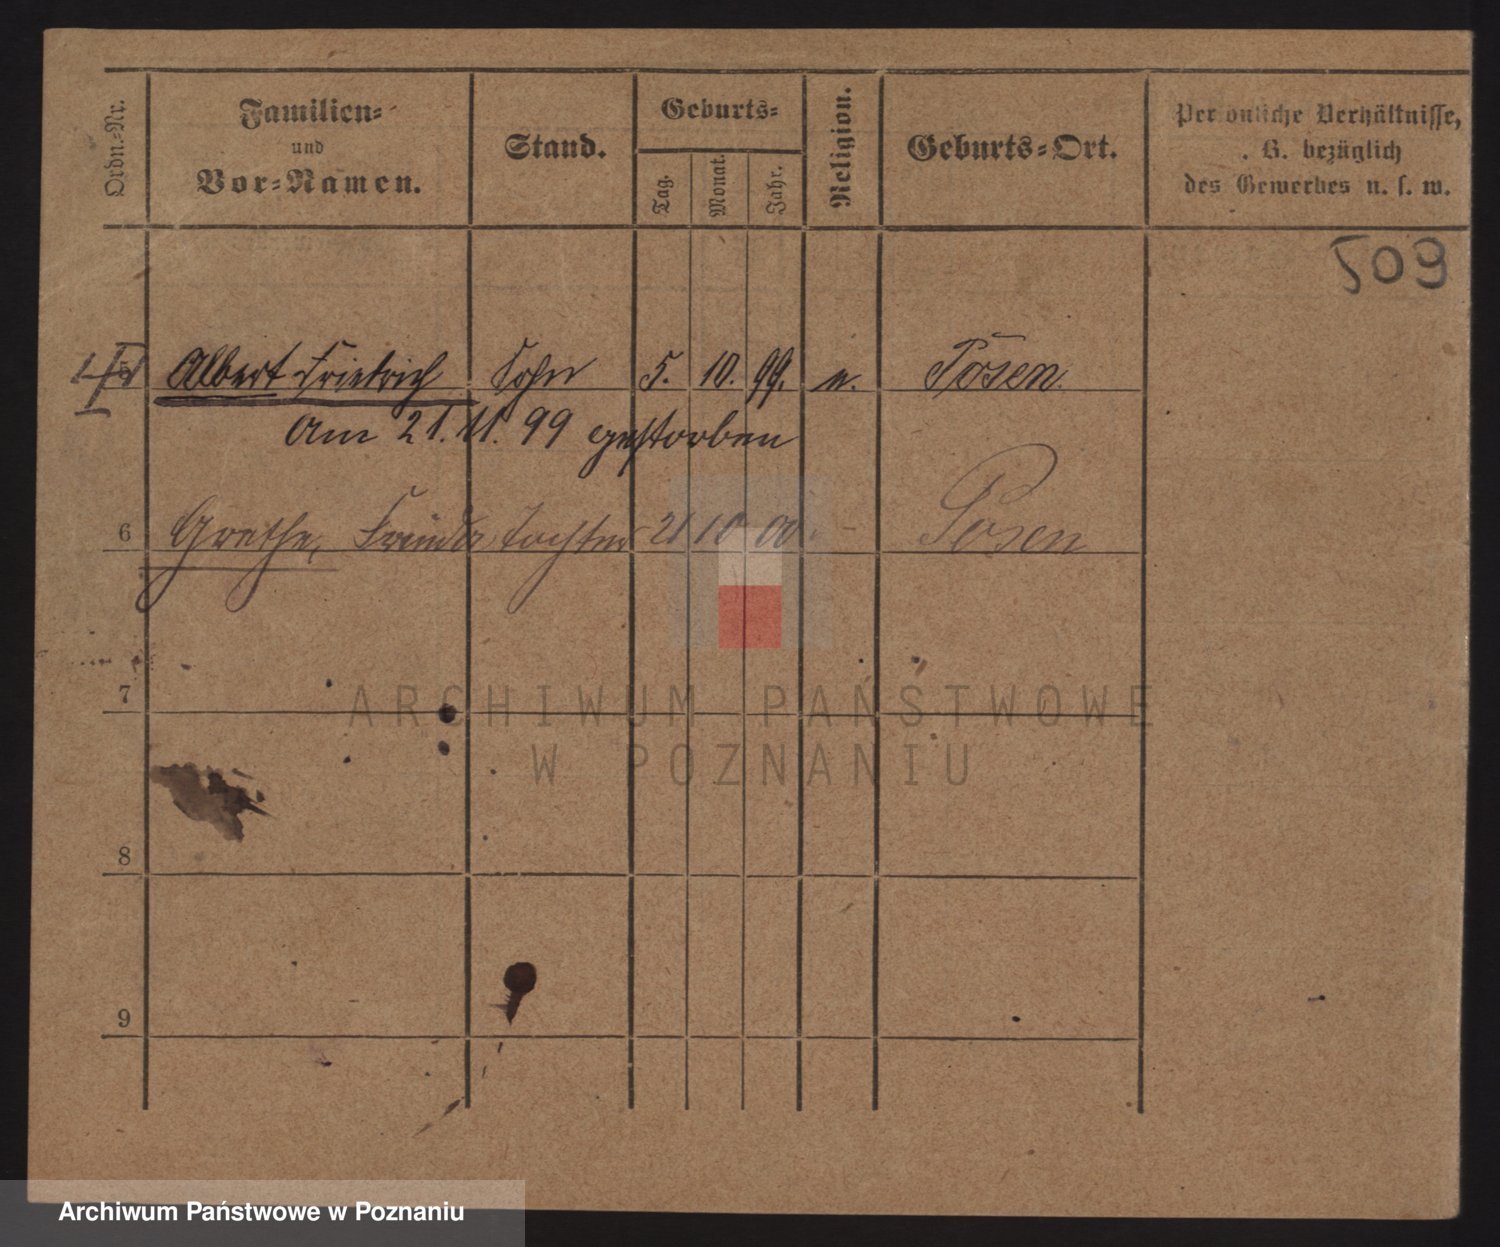 Ordn.-Nr.
Familien-
und
Vor-Namen.
Stand.
Geburts-
Tag.
Monat.
Jahr.
Religion.
Geburts-Ort.
Persönliche Verhältnisse,
z. B. bezüglich
des Gewerbes u. s. w.
509
5 Albert Friedrich Sohn 5. 10. 99. e. Posen
Am 21.11.99 gestorben
6 Grethe, Frieda Tochter 21 10 00. Posen
7
8
9
ARCHIWUM PAŃSTWOWE
W POZNANIU
Archiwum Państwowe w Poznaniu